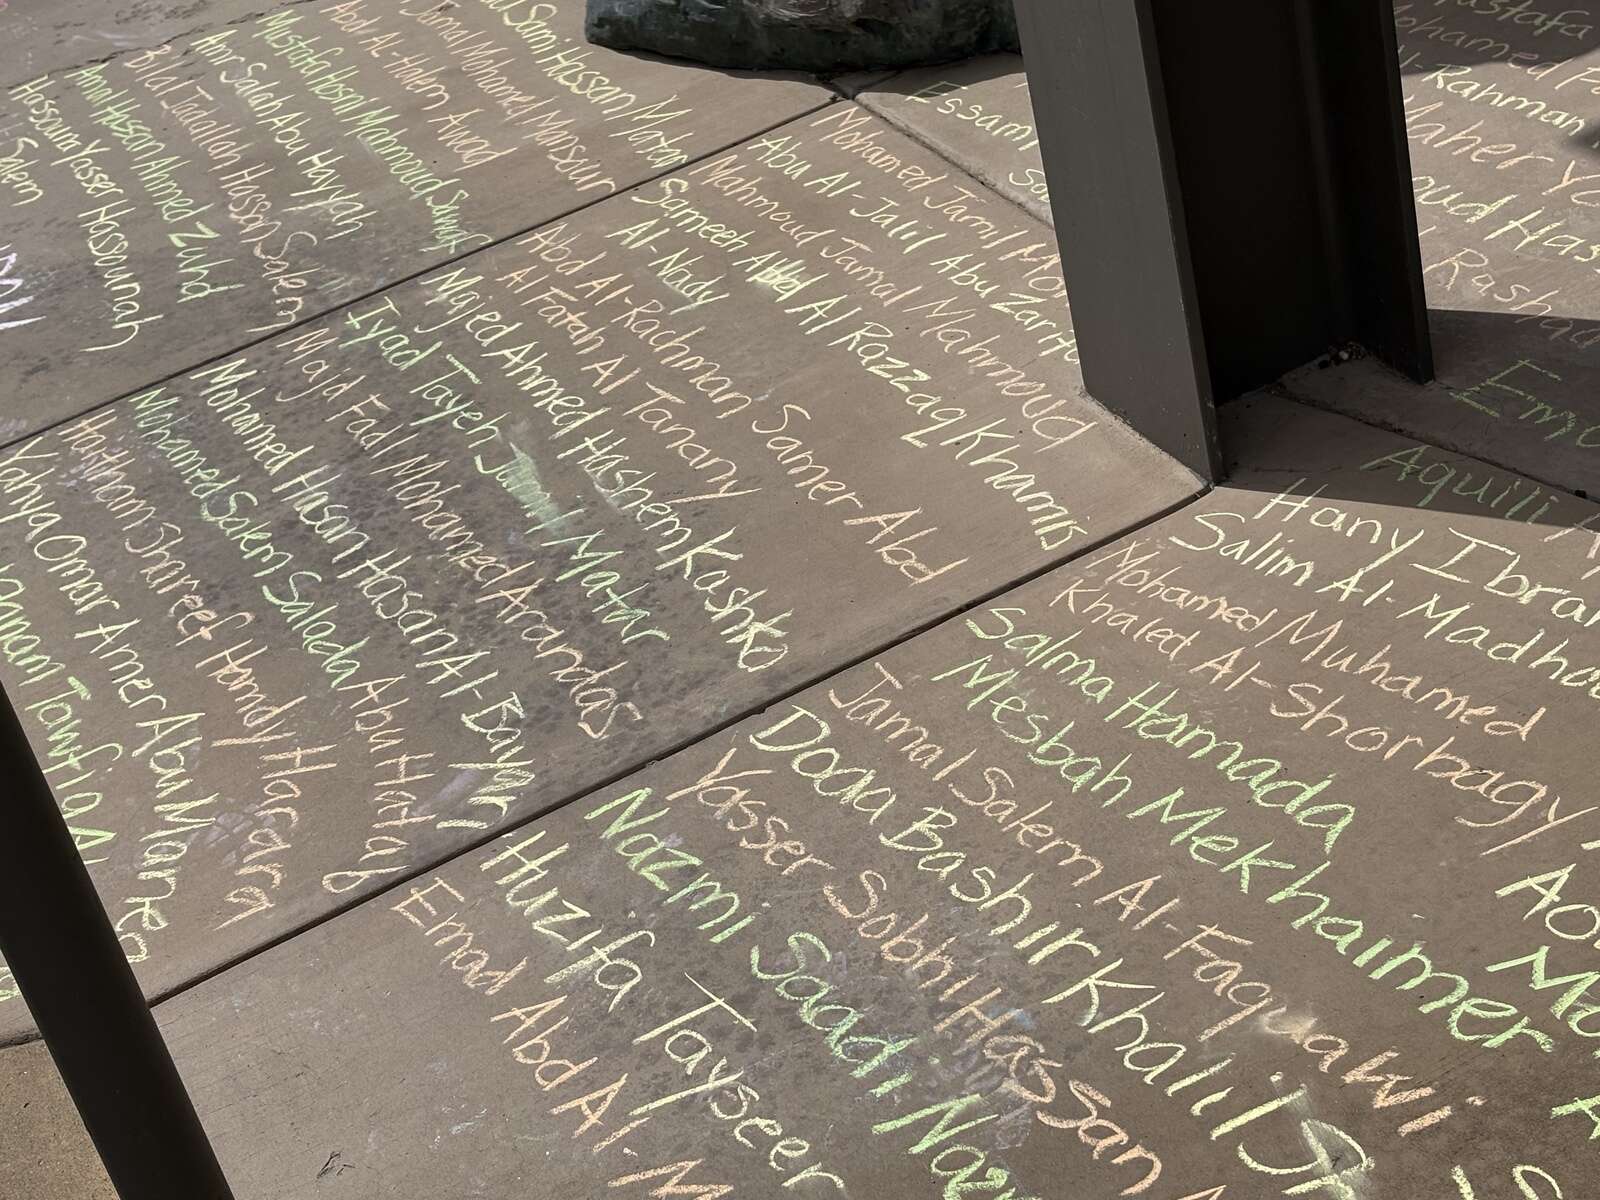 Sami Hassan Matar
Jamal Mohamed Mansour
Abd Al-Halem Awad
Mustafa Hosni Mahmoud Sawaf
Amr Salah Abu Hayyah
Bilal Jadallah Hassan Salem
Amal Hassan Ahmed Zuhd
Hassouna Yasser Hassounah
Salem
Essam
Mohamed Jamil
Abu Al-Jalil Abu Zarifa
Mahmoud Jamal Mahmoud
Sameeh Al Razzaq Khamis
Al-Nady
Abd Al-Rachman Samer Abd
Al Fatah Al Tanany
Majed Ahmed Hashem Kashko
Iyad Tayeh Matar
Majd Fadl Mohamed Arandas
Mohamed Hasan Hasan Al-Bayari
Mohamed Salem Salada Abu Hatab
Haitham Shareef Hamdy Hararah
Yahya Omar Amer Abu Maneea
Tawfiq Al
Mustafa
Mohamed
Al-Rahman
Maher
Rashad
Aquili
Hany Ibra
Salim Al-Madha
Mohamed Muhamed
Khaled Al-Shorbagy
Salma Hamada
Mesbah Mekhaimer
Jamal Salem Al-Faquawi
Doaa Bashir Khalil
Yasser Sobhi Hassan
Nazmi Saadi
Huzifa Tayseer
Emad Abd Al-